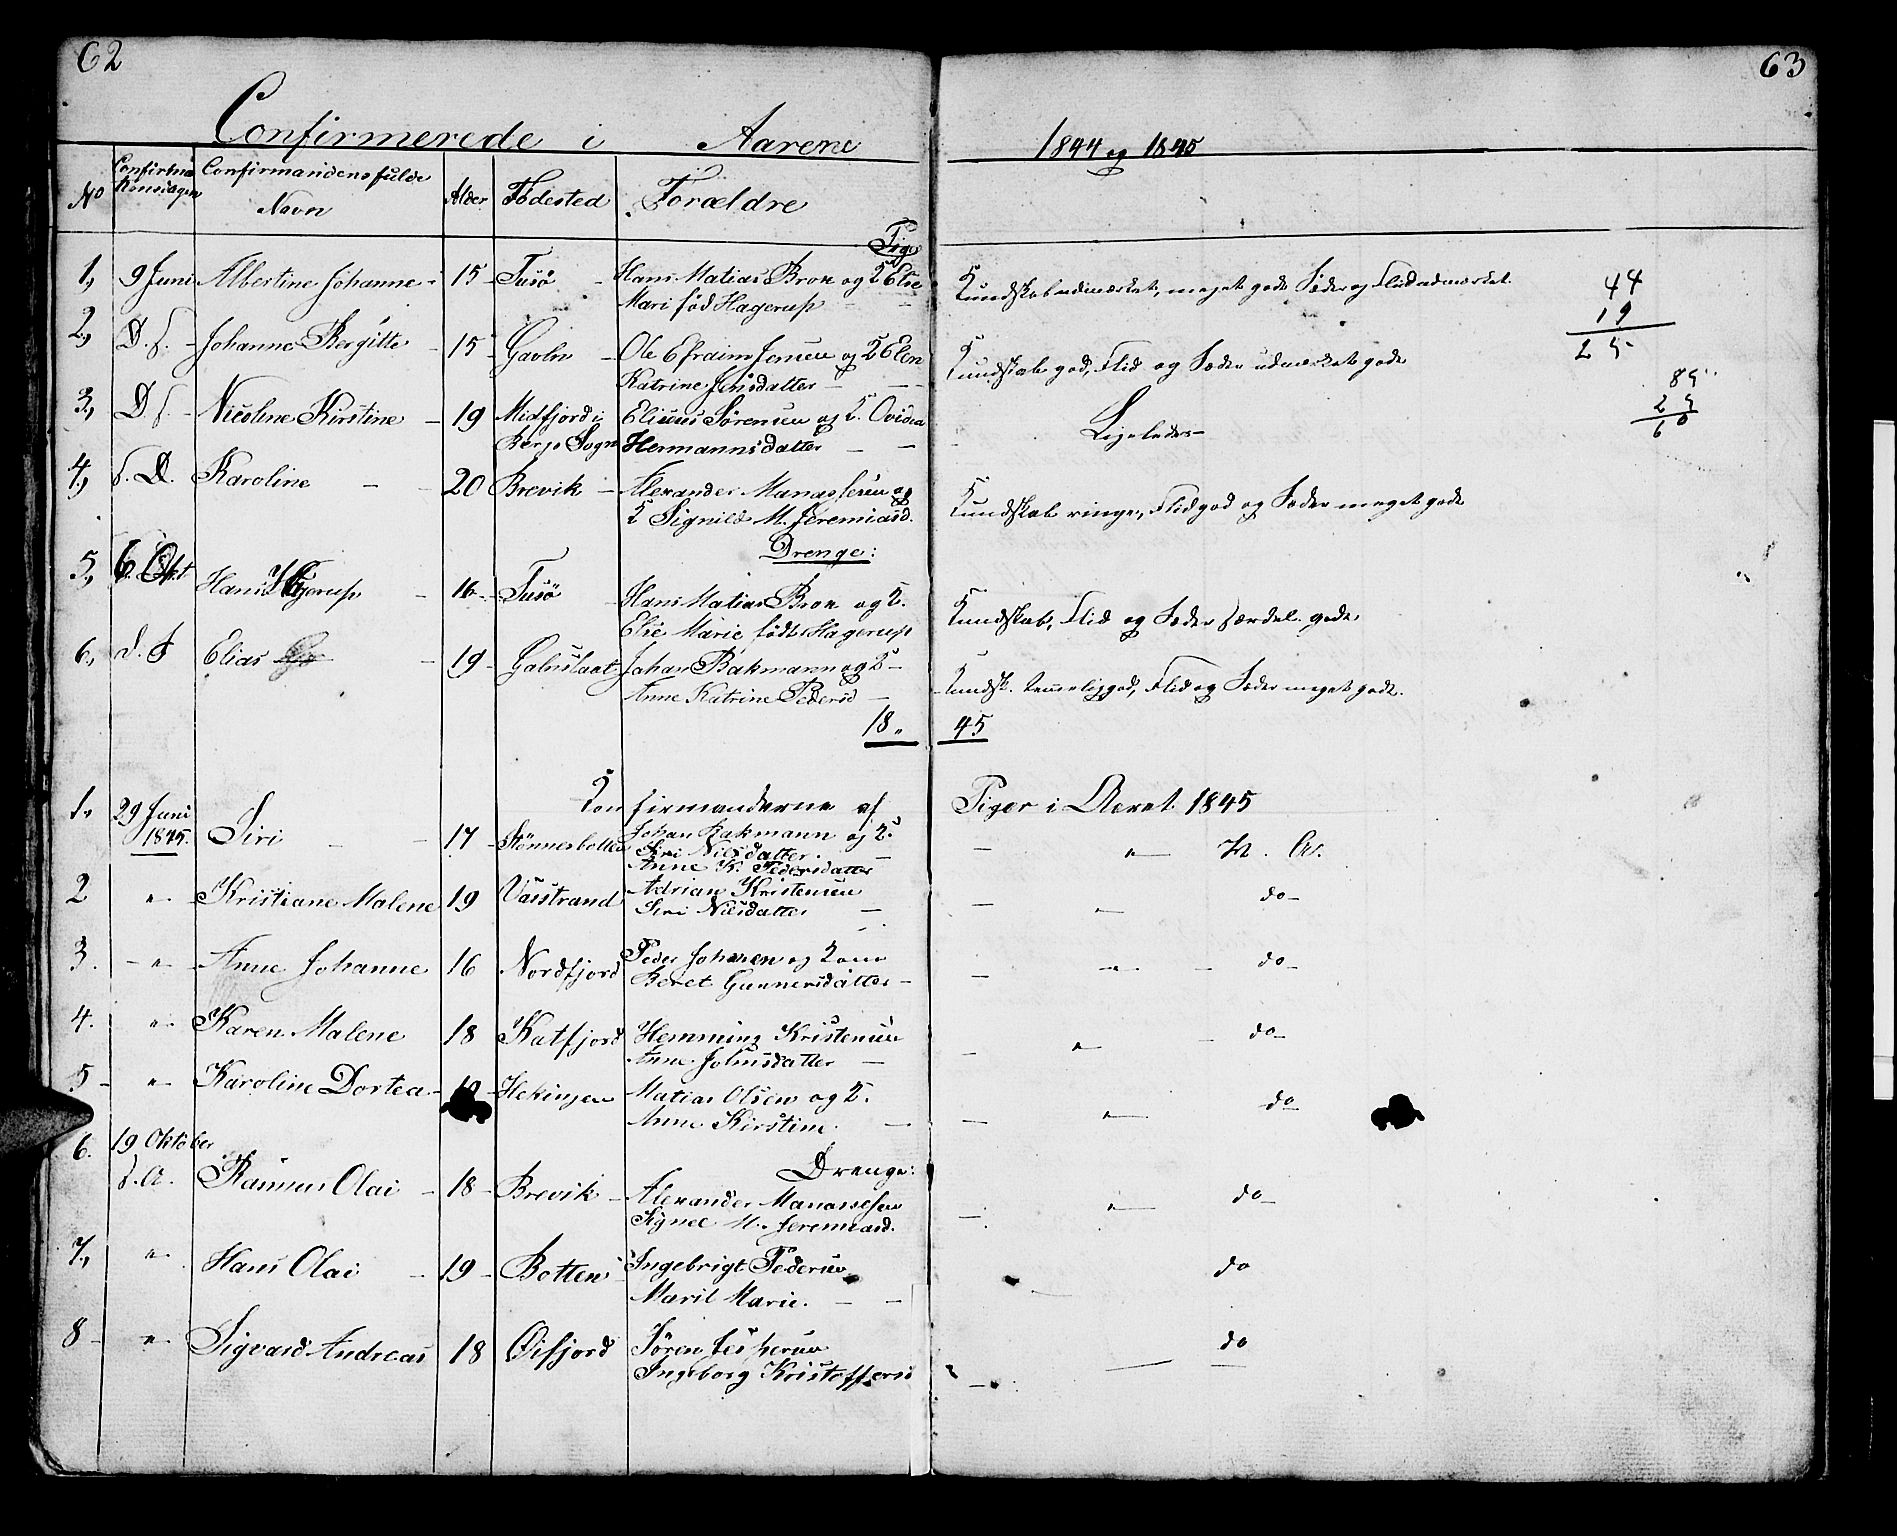 62
63
Confirmerede i Aarene 1844 og 1845
No Confirmationsdagen Confirmandens fulde Navn Alder Fødested Forældre
Piger
1, 9 Juni Albertine Johanne - 15 - Tusø - Hans Matias Bron og K Elise
Mari fød Hagerup - - Kundskab udmærket, meget gode Sæder og Flid udmærket.
44
19
25
2, D. S. - Johanna Bergitte - 15 - - Ole Efraim Jensen og K Elen
Katrine Jensdatter - - Kundskab god, Flid og Sæder udmærket gode
85
25
60
3, D S. - Nicoline Kirstine - 19 Midfjord i Eliseus Sørensen og K.
Bergs Sogn Hermannsdatter - - Ligeledes -
4, S. D. Karoline - - 20 Brevik - Alexander Manassesen og
K Signild M. Jeremiasd. Kundskab ringe, Flid god og Sæder meget gode
Drenge:
5, 6 Okt Hans Hagerup - 16 - Tusø - Hans Matias Bron og K.
Elise Marie født Hagerup Kundskab, Flid og Sæder særdel. gode.
6, d. S Elias - 19 - Johan Bakmann og K -
Anne Katrine Pedersd - Kundsk. temmelig god, Flid og Sæder meget gode.
18 " 45
Konfirmanderne af Piger i Aaret 1845
1, 29 Juni
1845. Siri - - 17 - Stønnesbotten Johan Bakmann og K.
Siri Nilsdatter. -
Anne K. Pedersdatter
2 " Kristiane Malene 19 Vasstrand Adrian Kristensen
Siri Nilsdatter - - " do -
3. - " - Anne Johanne 16 Nordfjord Peder Johnsen og Kone
Beret Gunnersdatter - - " - do -
4. " - Karen Malene 18 Katfjord Hemming Kristensen
Anne Johnsdatter - - " - do -
5 - " - Karoline Dortea - - Hekingen Matias Olsen og K.
Anne Kirstine. - - " do
Drenge:
6. 19 Oktober
S. A. Rasmus Olai - 18 - Brevik - Alexander Manassesen
Signel M. Jeremiasd. - " do -
7, " Hans Olai - 19 - Botten Ingebrigt Pedersen
Marit Marie. - - do
8 - " - Sigvard Andreas 18 Øifjord Søren Jespersen
Ingeborg Kristoffersd - do